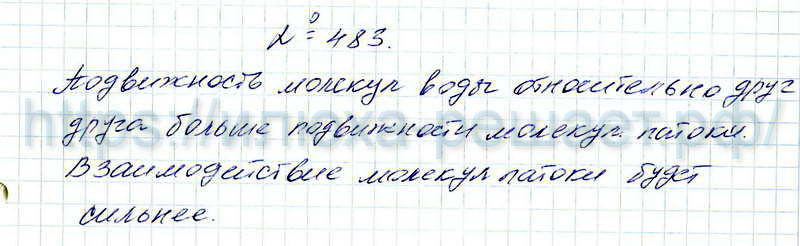 № 483.
Подвижность молекул воды относительно друг
друга больше подвижности молекул патоки.
Взаимодействие молекул патоки будет
сильнее.